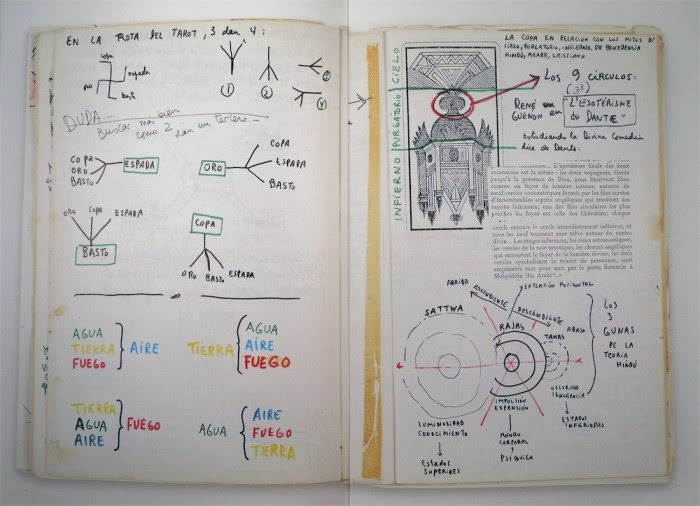 EN LA ROTA DEL TAROT, 3 dan 4:
copa
espada
oro
basto
1
2
3
4
DUDA...
Buscar mas bien
como 2 dan un tercero...
COPA
ORO
BASTO
ESPADA
ORO
COPA
ESPADA
BASTO
ORO COPA ESPADA
BASTO
COPA
ORO BASTO ESPADA
AGUA
TIERRA
FUEGO
AIRE
TIERRA
AGUA
AIRE
FUEGO
TIERRA
AGUA
AIRE
FUEGO
AGUA
AIRE
FUEGO
TIERRA
LA COPA EN RELACION CON LOS MITOS DE
CIELO, PURGATORIO, INFIERNO, DE PROCEDENCIA
HINDÚ, ARABE, CRISTIANA
INFIERNO PURGATORIO CIELO
LOS 9 CÍRCULOS.
(3³)
RENÉ
GUÉNON en
"L'ESOTÉRISME
DE DANTE"
Estudiando la Divina Comedia
de Dante.
L'apothéose finale des deux
ascensions est la même : les deux voyageurs, élevés
jusqu'à la présence de Dieu, nous décrivent Dieu
comme un foyer de lumière intense, entouré de
neuf cercles concentriques formés par les files serrées
d'innombrables esprits angéliques qui émettent des
rayons lumineux; une des files circulaires les plus
proches du foyer est celle des Chérubins; chaque
cercle entoure le cercle immédiatement inférieur, et
tous les neuf tournent sans trêve autour du centre
divin... Les étages infernaux, les cieux astronomiques,
les cercles de la rose mystique, les chœurs angéliques
qui entourent le foyer de la lumière divine, les trois
cercles symbolisant la trinité de personnes, sont
empruntés mot pour mot par le poète florentin à
Mohyiddin ibn Arabî
ARRIBA
ASCENDIENTE
EXTENSIÓN HORIZONTAL
DESCENDIENTE
SATTWA
RAJAS
TAMAS
ABAJO
LOS
3
GUNAS
DE LA
TEORÍA
HINDÚ
OSCURIDAD
IGNORANCIA
ESTADOS
INFERIORES
IMPULSIÓN
EXPANSIÓN
MUNDO
CORPORAL
Y
PSÍQUICO
LUMINOSIDAD
CONOCIMIENTO
Estados
Superiores